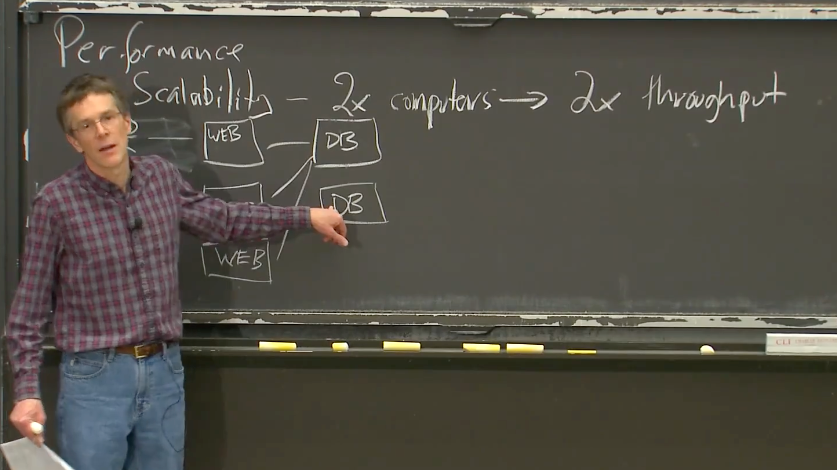 Performance
Scalability — 2x computers → 2x throughput
WEB DB
DB
WEB